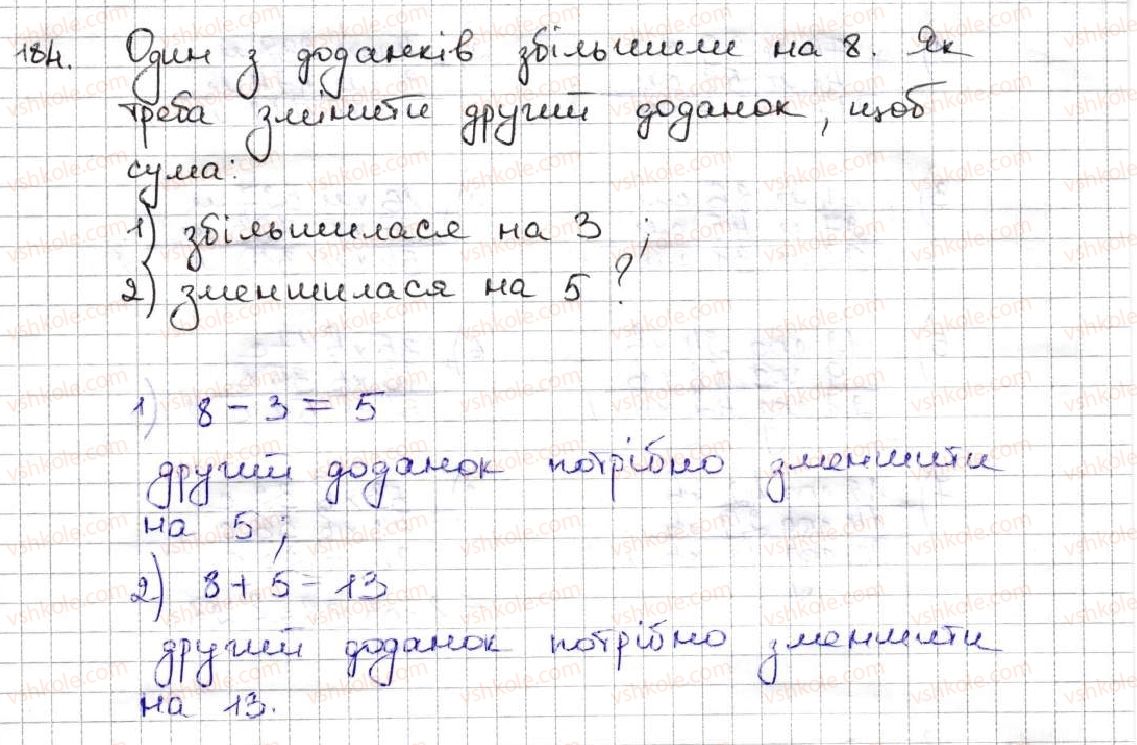 184. Один з доданків збільшили на 8. Як
треба змінити другий доданок, щоб
сума:
1) збільшилася на 3 ;
2) зменшилася на 5 ?
1) 8 - 3 = 5
другий доданок потрібно зменшити
на 5;
2) 8 + 5 = 13
другий доданок потрібно зменшити
на 13.